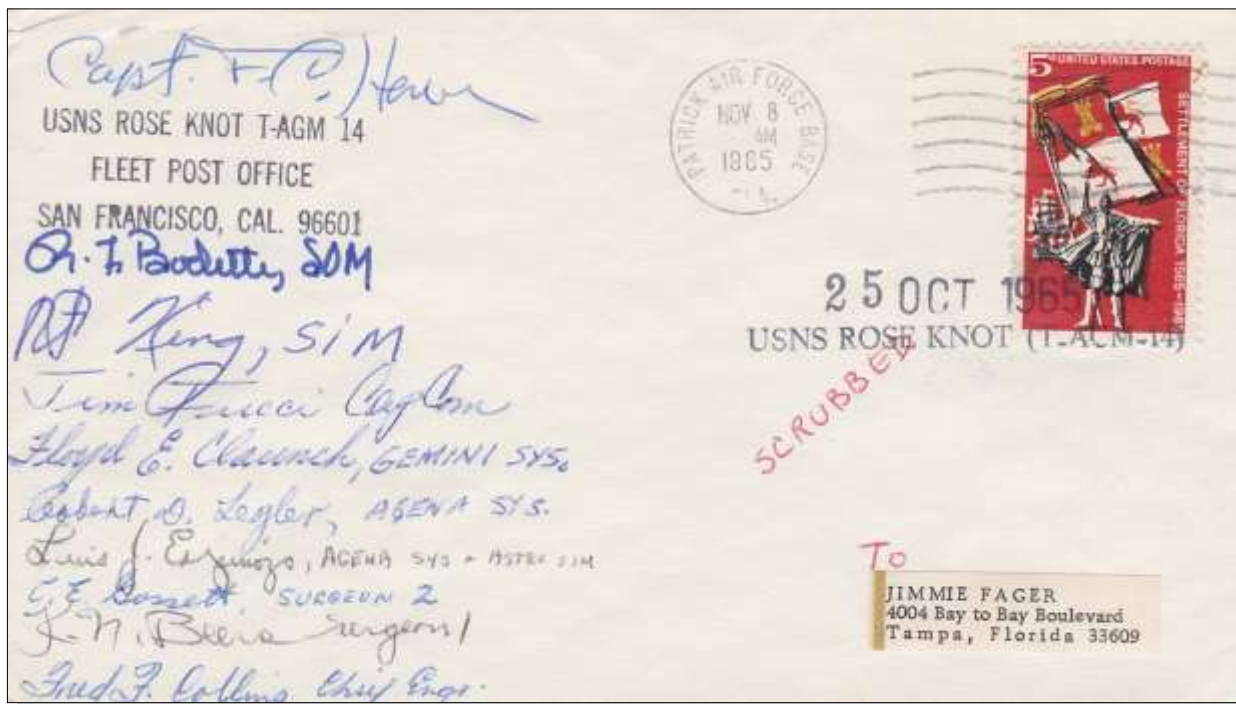 Capt. F. C.
USNS ROSE KNOT T-AGM 14
FLEET POST OFFICE
SAN FRANCISCO, CAL. 96601
Bodette, SDM
King, SIM
Jim Fucci CapCom
Floyd E. Claunch, GEMINI SYS.
Robert D. Legler, AGENA SYS.
Luis J. Espinoza, AGENA SYS + ASTRO SIM
SURGEON 2
Beers Surgeon 1
Fred F. Collins Chief Engr.
PATRICK AIR FORCE BASE
NOV 8
AM
1965
FLA.
5c UNITED STATES POSTAGE
SETTLEMENT OF FLORIDA 1565-1965
25 OCT 1965
USNS ROSE KNOT (T-AGM-14)
SCRUBBED
To
JIMMIE FAGER
4004 Bay to Bay Boulevard
Tampa, Florida 33609